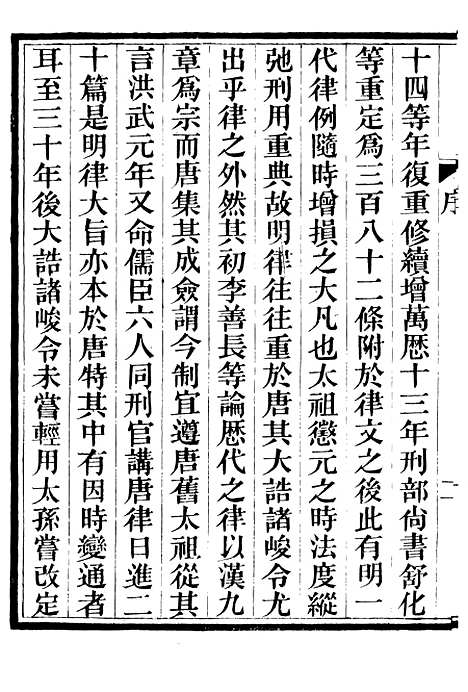 序
十四等年復重修續增萬厯十三年刑部尚書舒化
等重定爲三百八十二條附於律文之後此有明一
代律例隨時增損之大凡也太祖懲元之時法度縱
弛刑用重典故明律往往重於唐其大誥諸峻令尤
出乎律之外然其初李善長等論厯代之律以漢九
章爲宗而唐集其成僉謂今制宜遵唐舊太祖從其
言洪武元年又命儒臣六人同刑官講唐律日進二
十篇是明律大旨亦本於唐特其中有因時變通者
耳至三十年後大誥諸峻令未嘗輕用太孫嘗改定